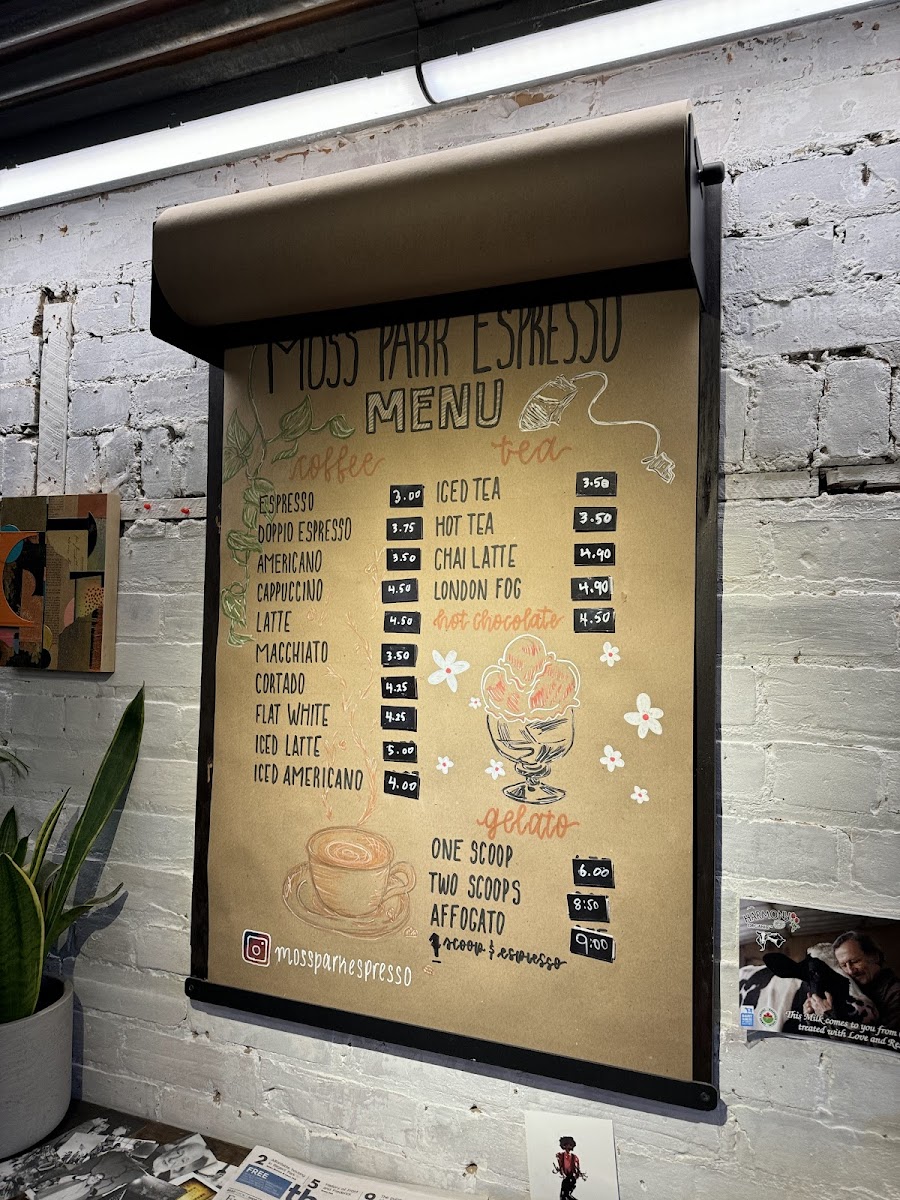 MOSS PARK ESPRESSO
MENU
coffee
ESPRESSO 3.00
DOPPIO ESPRESSO 3.75
AMERICANO 3.50
CAPPUCCINO 4.50
LATTE 4.50
MACCHIATO 3.50
CORTADO 4.25
FLAT WHITE 4.25
ICED LATTE 5.00
ICED AMERICANO 4.00
tea
ICED TEA 3.50
HOT TEA 3.50
CHAI LATTE 4.90
LONDON FOG 4.90
hot chocolate 4.50
gelato
ONE SCOOP 6.00
TWO SCOOPS 8:50
AFFOGATO 9:00
1 scoop & espresso
mossparkespresso
HARMONY
This Milk comes to you from
treated with Love and Re
2
FREE
5
9
th